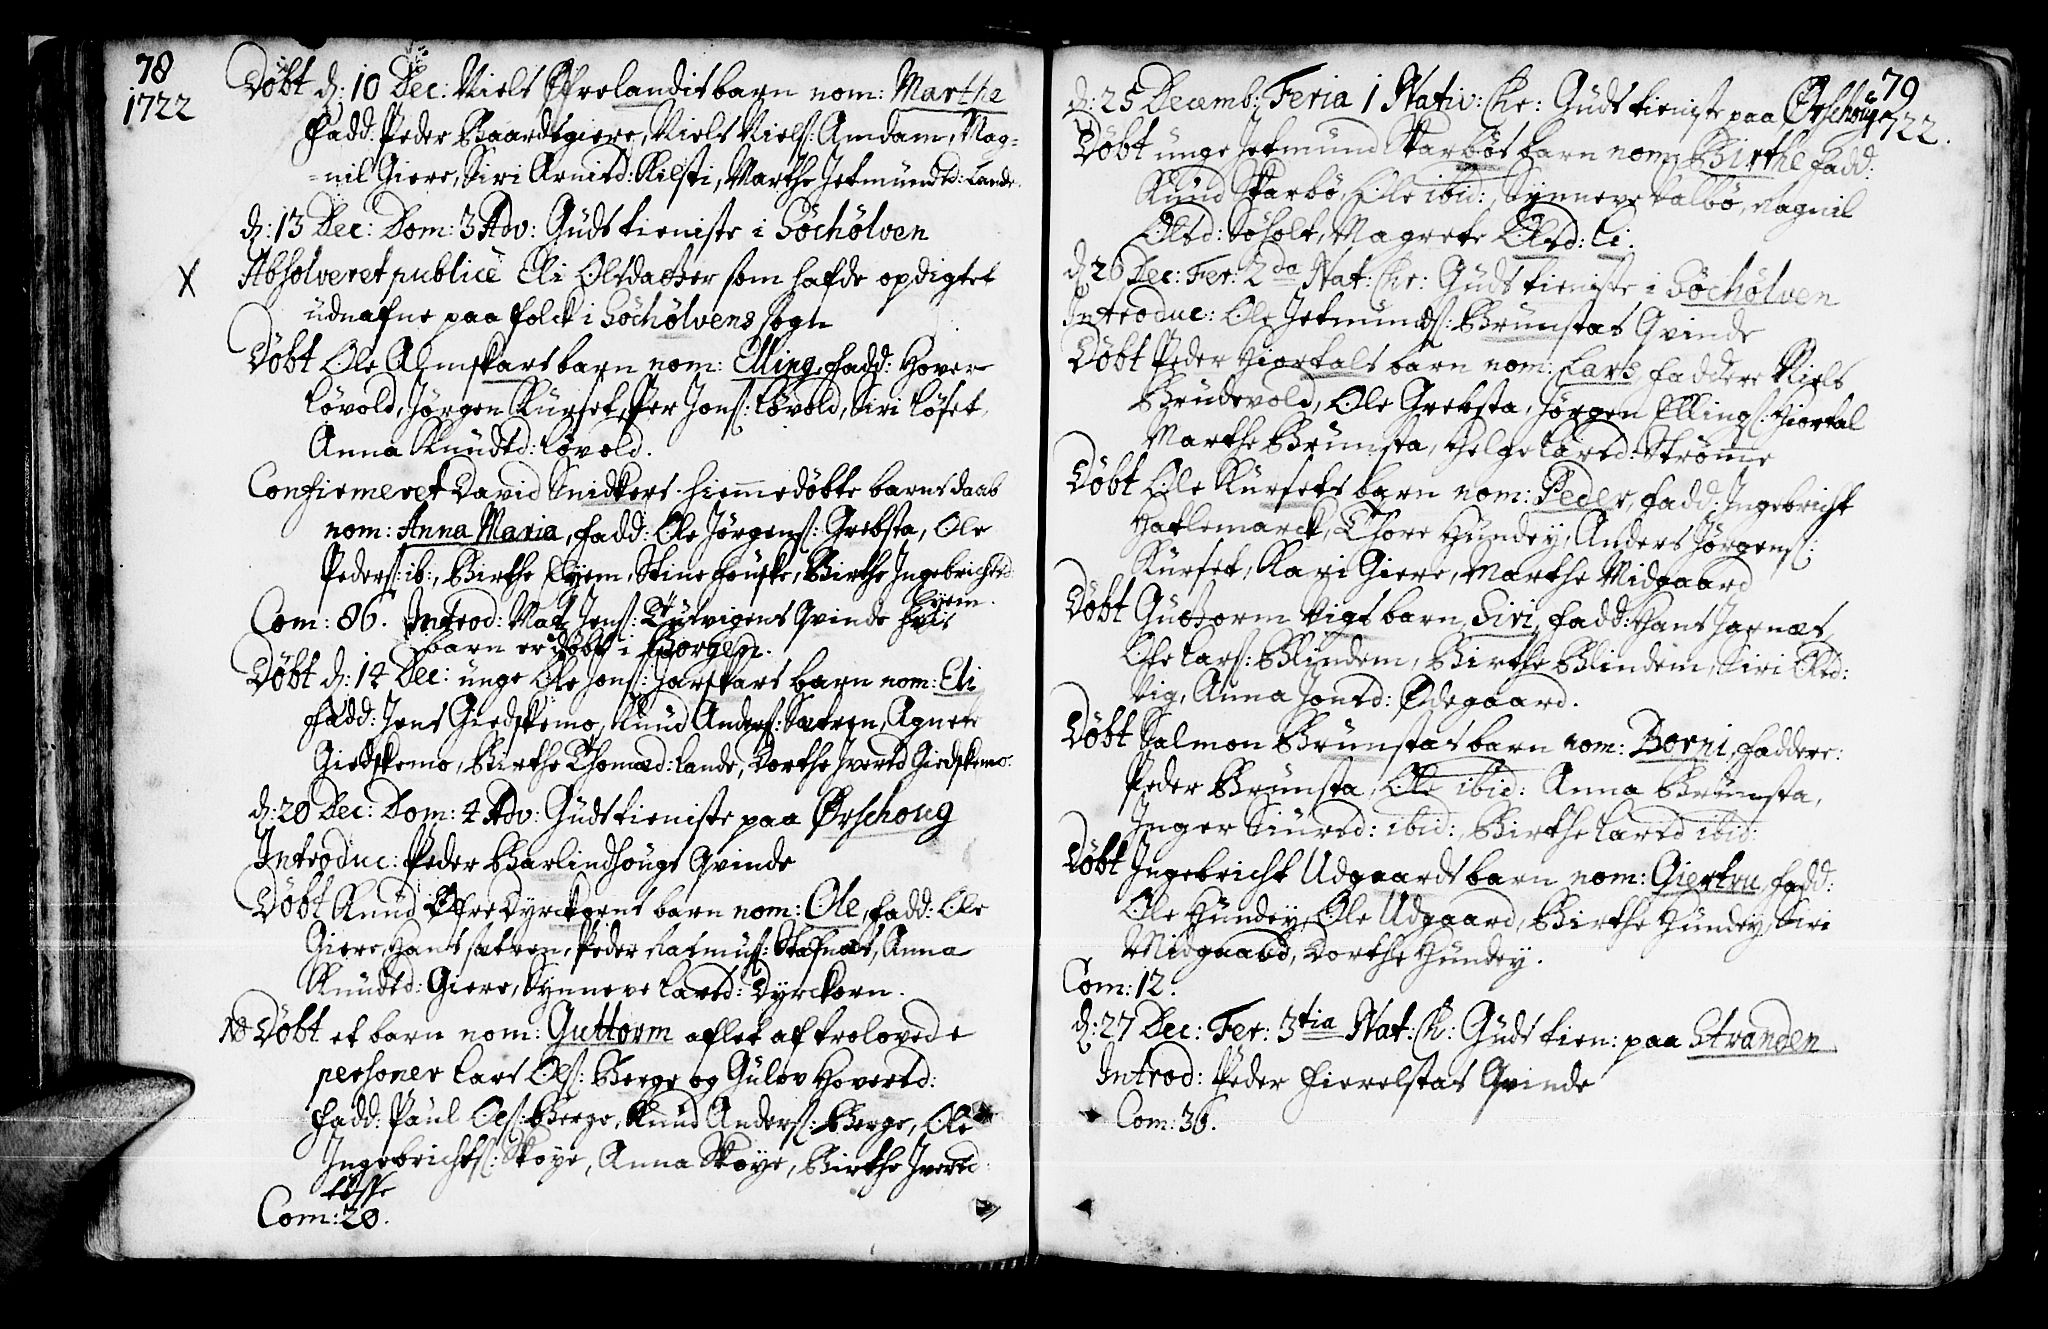 78
1722
Döbt d: 10 Dec: Niels Øfrelandis barn nom: Marthe
Fadd: Peder Baardsgiere, Niels Niels: Amdam, Mag-
-nil Giere, Siri Arnisd: Kilsti, Marthe Jetmundsd: Lande.
d: 13 Dec: Dom: 3 Adv: Gudstieniste i Söchölven
Absolveret publicè Eli Olsdatter som hafde opdigtet
udnafne paa folck i Söchölvens sogn
Döbt Ole Almskars barn nom: Elling, Fadd: Hover
Lövold, Jörgen Kurset, Per Jons: Lövold, Siri Löset,
Anna Knudsd: Lövold.
Confirmeret David Snidkers hiemmedöbte barns daab
nom: Anna Maria, Fadd: Ole Jörgens: Grebsta, Ole
Peders: ib:, Birthe Eyem, Stine Fenske, Birthe Ingebrichtsd
Eyem.
Com: 86. Introd: Mat Jens: Qvinde hvis
barn er döbt i Borgen.
Döbt d: 14 Dec: unge Ole Jons: Jarskars barn nom: Eli
Fadd: Jens Giedskemo, Knud Anders: Sætren, Agnete
Giedskemo, Birthe Thomæd: Lande, Dorthe Iversd Giedskemo.
d: 20 Dec: Dom: 4 Adv: Gudstieniste paa Ørschoug
Introduc: Peder Barlindhougs Qvinde
Döbt Knud Øfre Dyrckorns barn nom: Ole, Fadd: Ole
Giere, Hans Sætren, Peder Rasmus: Stafnæs, Anna
Knudsd: Giere, Synneve Larsd: Dyrckorn.
NB Döbt et barn nom: Guttorm aflet af trolovede
personer Lars Ols: Berge og Gulov Hoversd:
Fadd: Paul Ols: Berge, Knud Anders: Berge, Ole
Ingebrichts: Skoye, Anna Skoye, Birthe Iversd:
Com: 20.
79
1722.
d: 25 Decemb: Feria 1 Nativ: Chr: Gudstieniste paa Ørschoug
Döbt unge Jetmund Skarbös barn nom: Birthe Fadd:
Knud Skarbö, Ole ibid:, Synneve Valbö, Magnil
Olsd: Söholt, Magrete Olsd: Li.
d: 26 Dec: Fer: 2da Nat: Chr: Gudstieniste i Söchölven
Introduc: Ole Jetmunds: Brunstas Qvinde
Döbt Peder Hiortals barn nom: Lars, Faddere Niels
Brudevold, Ole Grebsta, Jörgen Ellings: Hiortal
Marthe Brunsta, Helge Larsd: Strömme
Döbt Ole Kursets barn nom: Peder, Fadd: Ingebricht
Hatlemarck, Thore Hundey, Anders Jörgens:
Kurset, Kari Giere, Marthe Midgaard
Döbt Guttorm Vigs barn, Siri, Fadd: Hans Jarnæs,
Ole Lars: Blindem, Birthe Blindem, Siri Olsd:
Vig, Anna Jonsd: Ødegaard.
Döbt Salmon Brunstas barn nom: Borni, Faddere:
Peder Brunsta, Ole ibid: Anna Brunsta,
Inger Siursd: ibid:, Birthe Larsd ibid:
Döbt Ingebricht Udgaards barn nom: Giertru, Fadd:
Ole Hundey, Ole Udgaard, Birthe Hundey, Siri
Midgaard, Dorthe Hundey.
Com: 12.
d: 27 Dec: Fer: 3tia Nat: Ch: Gudstien: paa Stranden
Introd: Peder Fierelstas Qvinde
Com: 36.